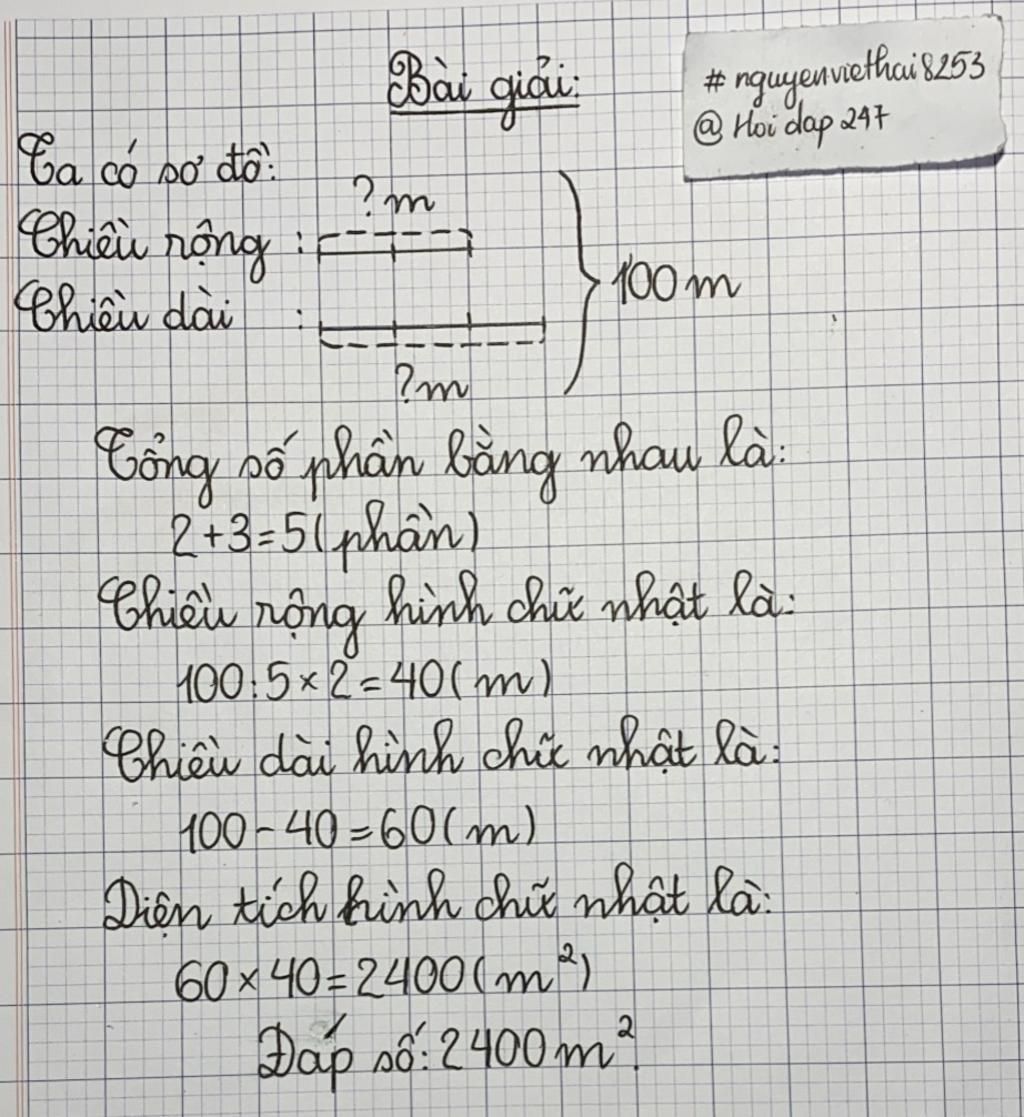 Bài giải:
#nguyenviethai8253
@ Hoi dap 247
Ta có sơ đồ:
?m
Chiều rộng :
100 m
Chiều dài :
?m
Tổng số phần bằng nhau là:
2+3=5(phần)
Chiều rộng hình chữ nhật là:
100:5×2=40(m)
Chiều dài hình chữ nhật là:
100-40=60(m)
Diện tích hình chữ nhật là:
60×40=2400(m²)
Đáp số: 2400m².